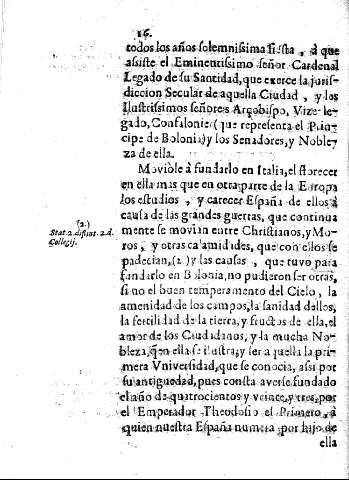 16.
todos los años solemnissima fiesta, à que
assiste el Eminentissimo señor Cardenal
Legado de su Santidad, que exerce la juris-
diccion Secular de aquella Ciudad, y los
Ilustrissimos señores Arçobispo, Vize-le-
gado, Confalonier (que representa el Prin-
cipe de Bolonia) y los Senadores, y Noble-
za de ella.
Moviòle à fundarlo en Italia, el florecer
en ella mas que en otra parte de la Europa
los estudios, y carecer España de ellos à
causa de las grandes guerras, que continua
mente se movian entre Christianos, y Mo-
ros, y otras calamidades, que con ellos se
padecian, (2) y las causas, que tuvo para
fundarlo en Bolonia, no pudieron ser otras,
si no el buen temperamento del Cielo, la
amenidad de los campos, la sanidad dellos,
la fertilidad de la tierra, y fructos de ella, el
amor de los Ciudadanos, y la mucha No-
bleza, q̃en ella se ilustra, y ser aquella la pri-
mera Vniversidad, que se conocia, assi por
su antiguedad, pues consta averse fundado
el año de quatrocientos y veinte y tres, por
el Emperador Theodosio el Primero, à
quien nuestra España numera por hijo de
ella
(2.)
Stat. 2. distint. 2. d.
Collegij.